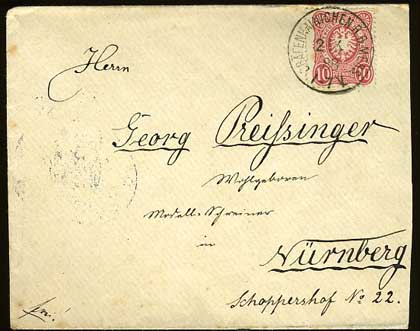 GRÄFENHAINICHEN
10 10
Herrn
Georg Preissinger
Wohlgeboren
Modell-Schreiner
in
Nürnberg
Schoppershof No 22.